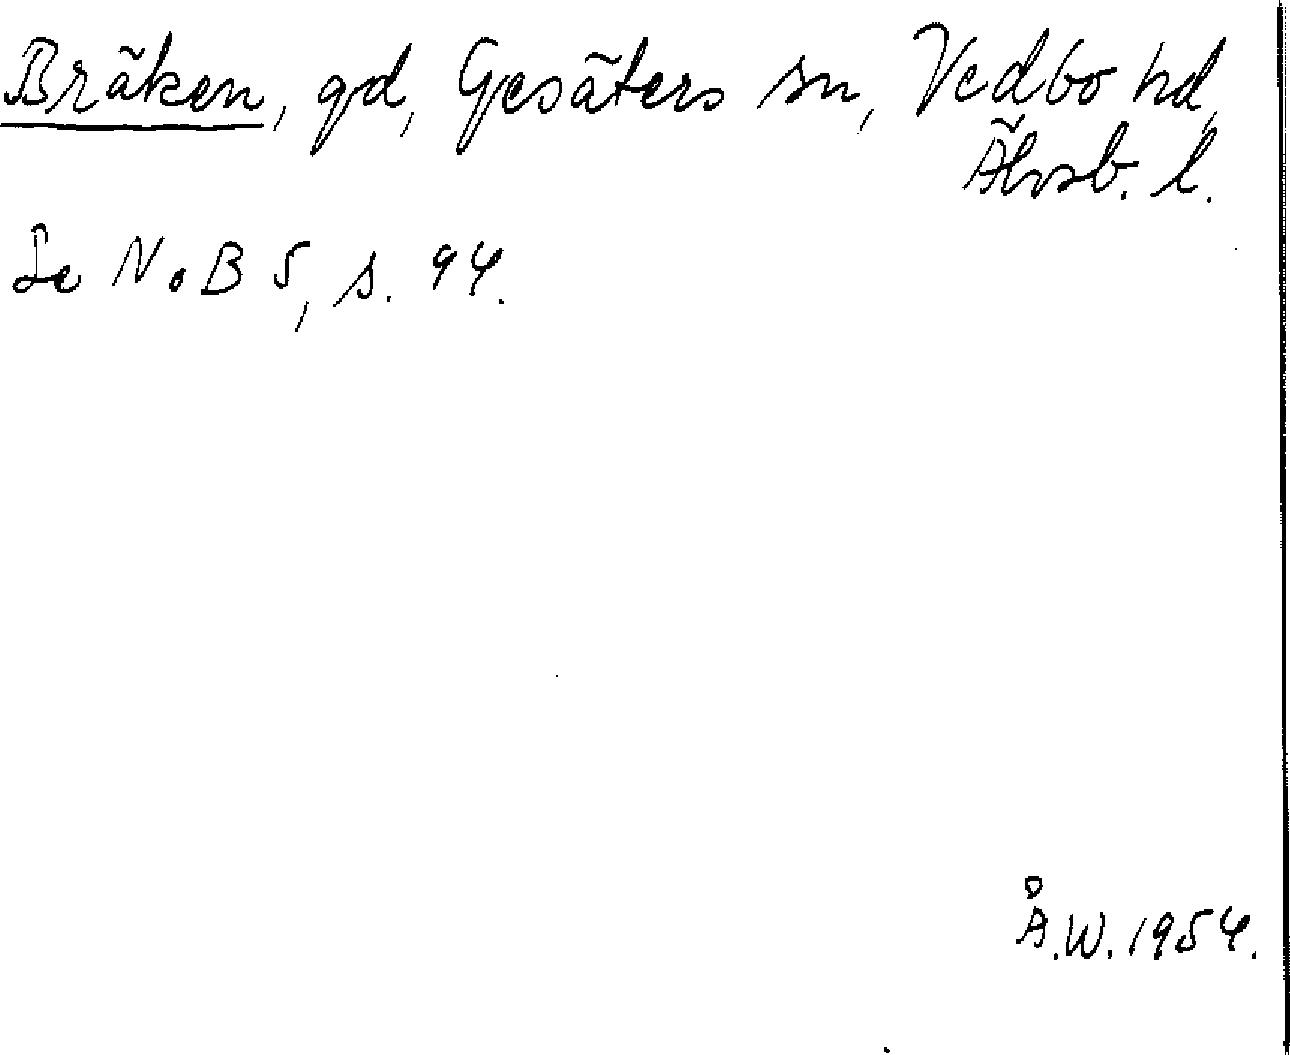 Bräken, gd, Gesäters sn, Vedbo hd,
Älvsb. l.
Se NoB 5, s. 94.
Å.W. 1954.